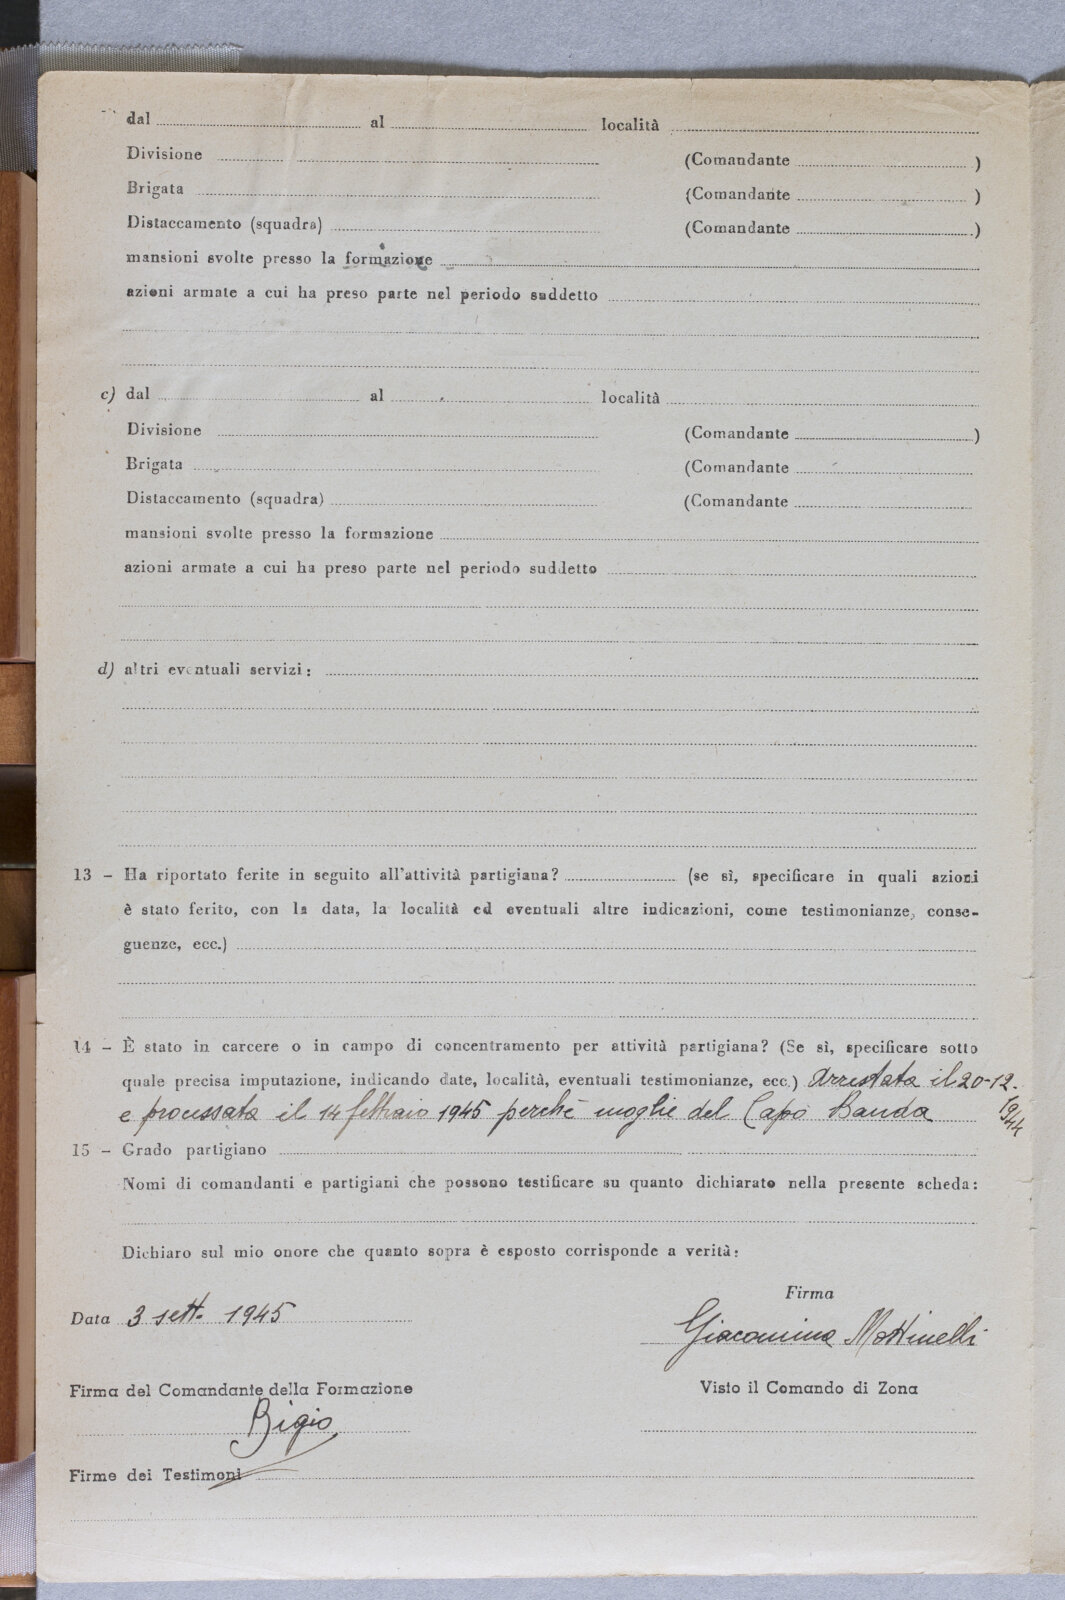 dal al località
Divisione (Comandante )
Brigata (Comandante )
Distaccamento (squadra) (Comandante )
mansioni svolte presso la formazione
azioni armate a cui ha preso parte nel periodo suddetto
c) dal al località
Divisione (Comandante )
Brigata (Comandante
Distaccamento (squadra) (Comandante
mansioni svolte presso la formazione
azioni armate a cui ha preso parte nel periodo suddetto
d) altri eventuali servizi:
13 - Ha riportato ferite in seguito all'attività partigiana? (se sì, specificare in quali azioni
è stato ferito, con la data, la località ed eventuali altre indicazioni, come testimonianze, conse-
guenze, ecc.)
14 - È stato in carcere o in campo di concentramento per attività partigiana? (Se sì, specificare sotto
quale precisa imputazione, indicando date, località, eventuali testimonianze, ecc.) Arrestata il 20-12-1944
e processata il 14 febbraio 1945 perchè moglie del Capo Banda
15 - Grado partigiano
Nomi di comandanti e partigiani che possono testificare su quanto dichiarato nella presente scheda:
Dichiaro sul mio onore che quanto sopra è esposto corrisponde a verità:
Firma
Data 3 sett. 1945 Giacomina Mottinelli
Firma del Comandante della Formazione Visto il Comando di Zona
Bigio
Firme dei Testimoni